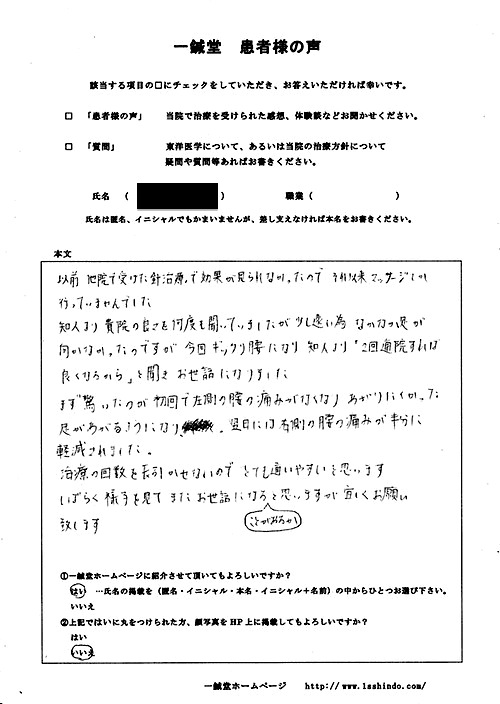 一鍼堂 患者様の声
該当する項目の□にチェックをしていただき、お答えいただければ幸いです。
□ 「患者様の声」 当院で治療を受けられた感想、体験談などお聞かせください。
□ 「質問」 東洋医学について、あるいは当院の治療方針について
疑問や質問等あればお書きください。
氏名 ( ) 職業 ( )
氏名は匿名、イニシャルでもかまいませんが、差し支えなければ本名をお書きください。
本文
以前 他院で受けた針治療で効果が見られなかったので それ以来マッサージしか
行っていませんでした
知人より貴院の良さを何度も聞いていましたが少し遠い為 なかなか足が
向かなかったのですが 今回ギックリ腰になり 知人より「2回通院すれば
良くなるから」と聞き お世話になりました
まず驚いたのが初回で左側の腰の痛みがなくなり あがりにくかった
足があがるようになり 、翌日には右側の腰の痛みが半分に
軽減されました。
治療の回数を長引かせないので とても通いやすいと思います
しばらく様子を見て またお世話になると思いますが 宜しくお願い
ことがあるか
致します
①一鍼堂ホームページに紹介させて頂いてもよろしいですか？
はい …氏名の掲載を（匿名・イニシャル・本名・イニシャル＋名前）の中からひとつお選び下さい。
いいえ
②上記ではいに丸をつけられた方、顔写真をHP上に掲載してもよろしいですか？
はい
いいえ
一鍼堂ホームページ http://www.1sshindo.com/